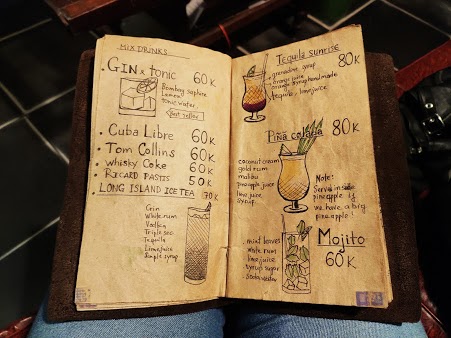 MIX DRINKS
GIN & tonic 60K
Bombay saphire
Lemon
tonic water
Best seller
Cuba Libre 60K
Tom Collins 60K
Whisky Coke 60K
RICARD PASTIS 50K
LONG ISLAND ICE TEA 70K
Gin
White rum
Vodka
Triple sec
Tequila
Lime juice
Simple syrup
Tequila sunrise 80K
grenadine syrup
orange juice
orange syrup handmade
tequila, lime juice
Piña colada 80K
coconut cream
gold rum
malibu
pineapple juice
lime juice
syrup
Note:
Served in side
pineapple if
we have a big
pineapple!
Mojito
60K
mint leaves
white rum
lime juice
syrup sugar
Soda water